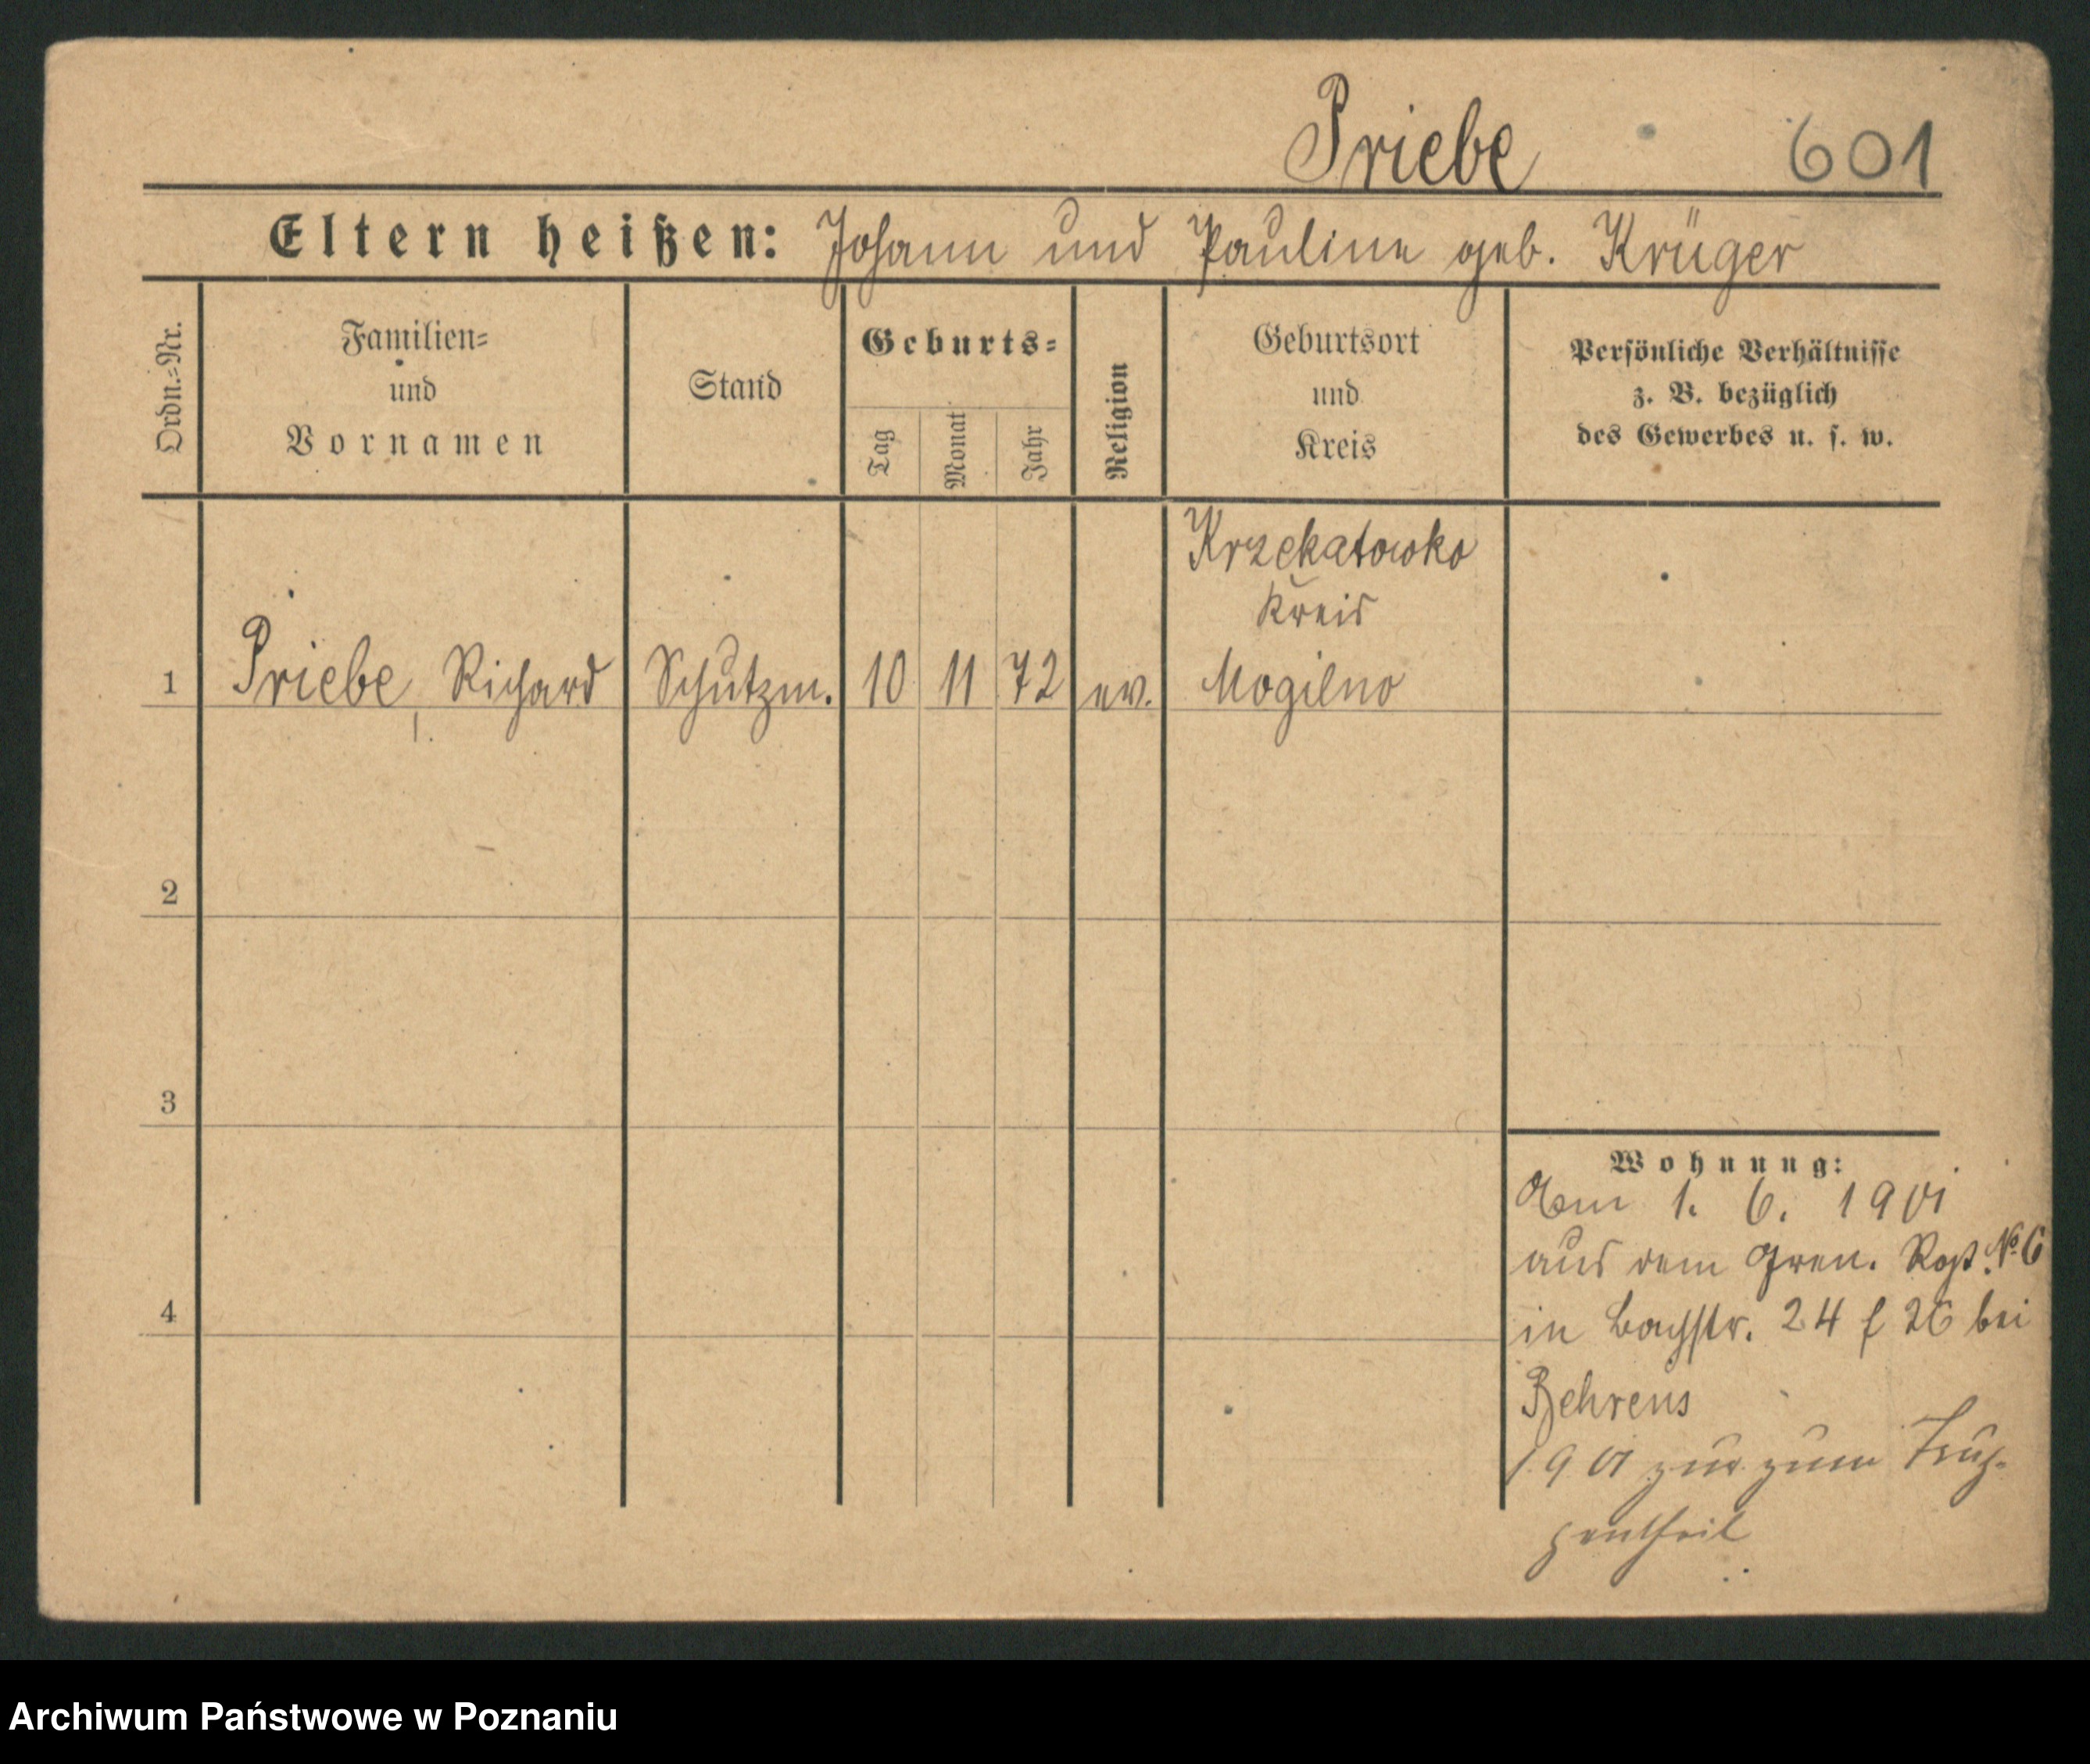 Priebe 601
Eltern heißen: Johann und Pauline geb. Krüger
Ordn.-Nr.
Familien-
und
Vornamen
Stand
Geburts-
Tag
Monat
Jahr
Religion
Geburtsort
und
Kreis
Persönliche Verhältnisse
z. B. bezüglich
des Gewerbes u. s. w.
Krzekatowko
Kreis
1 Priebe, Richard Schutzm. 10 11 72 ev. Mogilno
2
3
4
Wohnung:
Am 1. 6. 1901
aus dem Gren. Rgt. No 6
in Bachstr. 24 / 26 bei
Behrens
1901 zur zum Trup-
pentheil
Archiwum Państwowe w Poznaniu